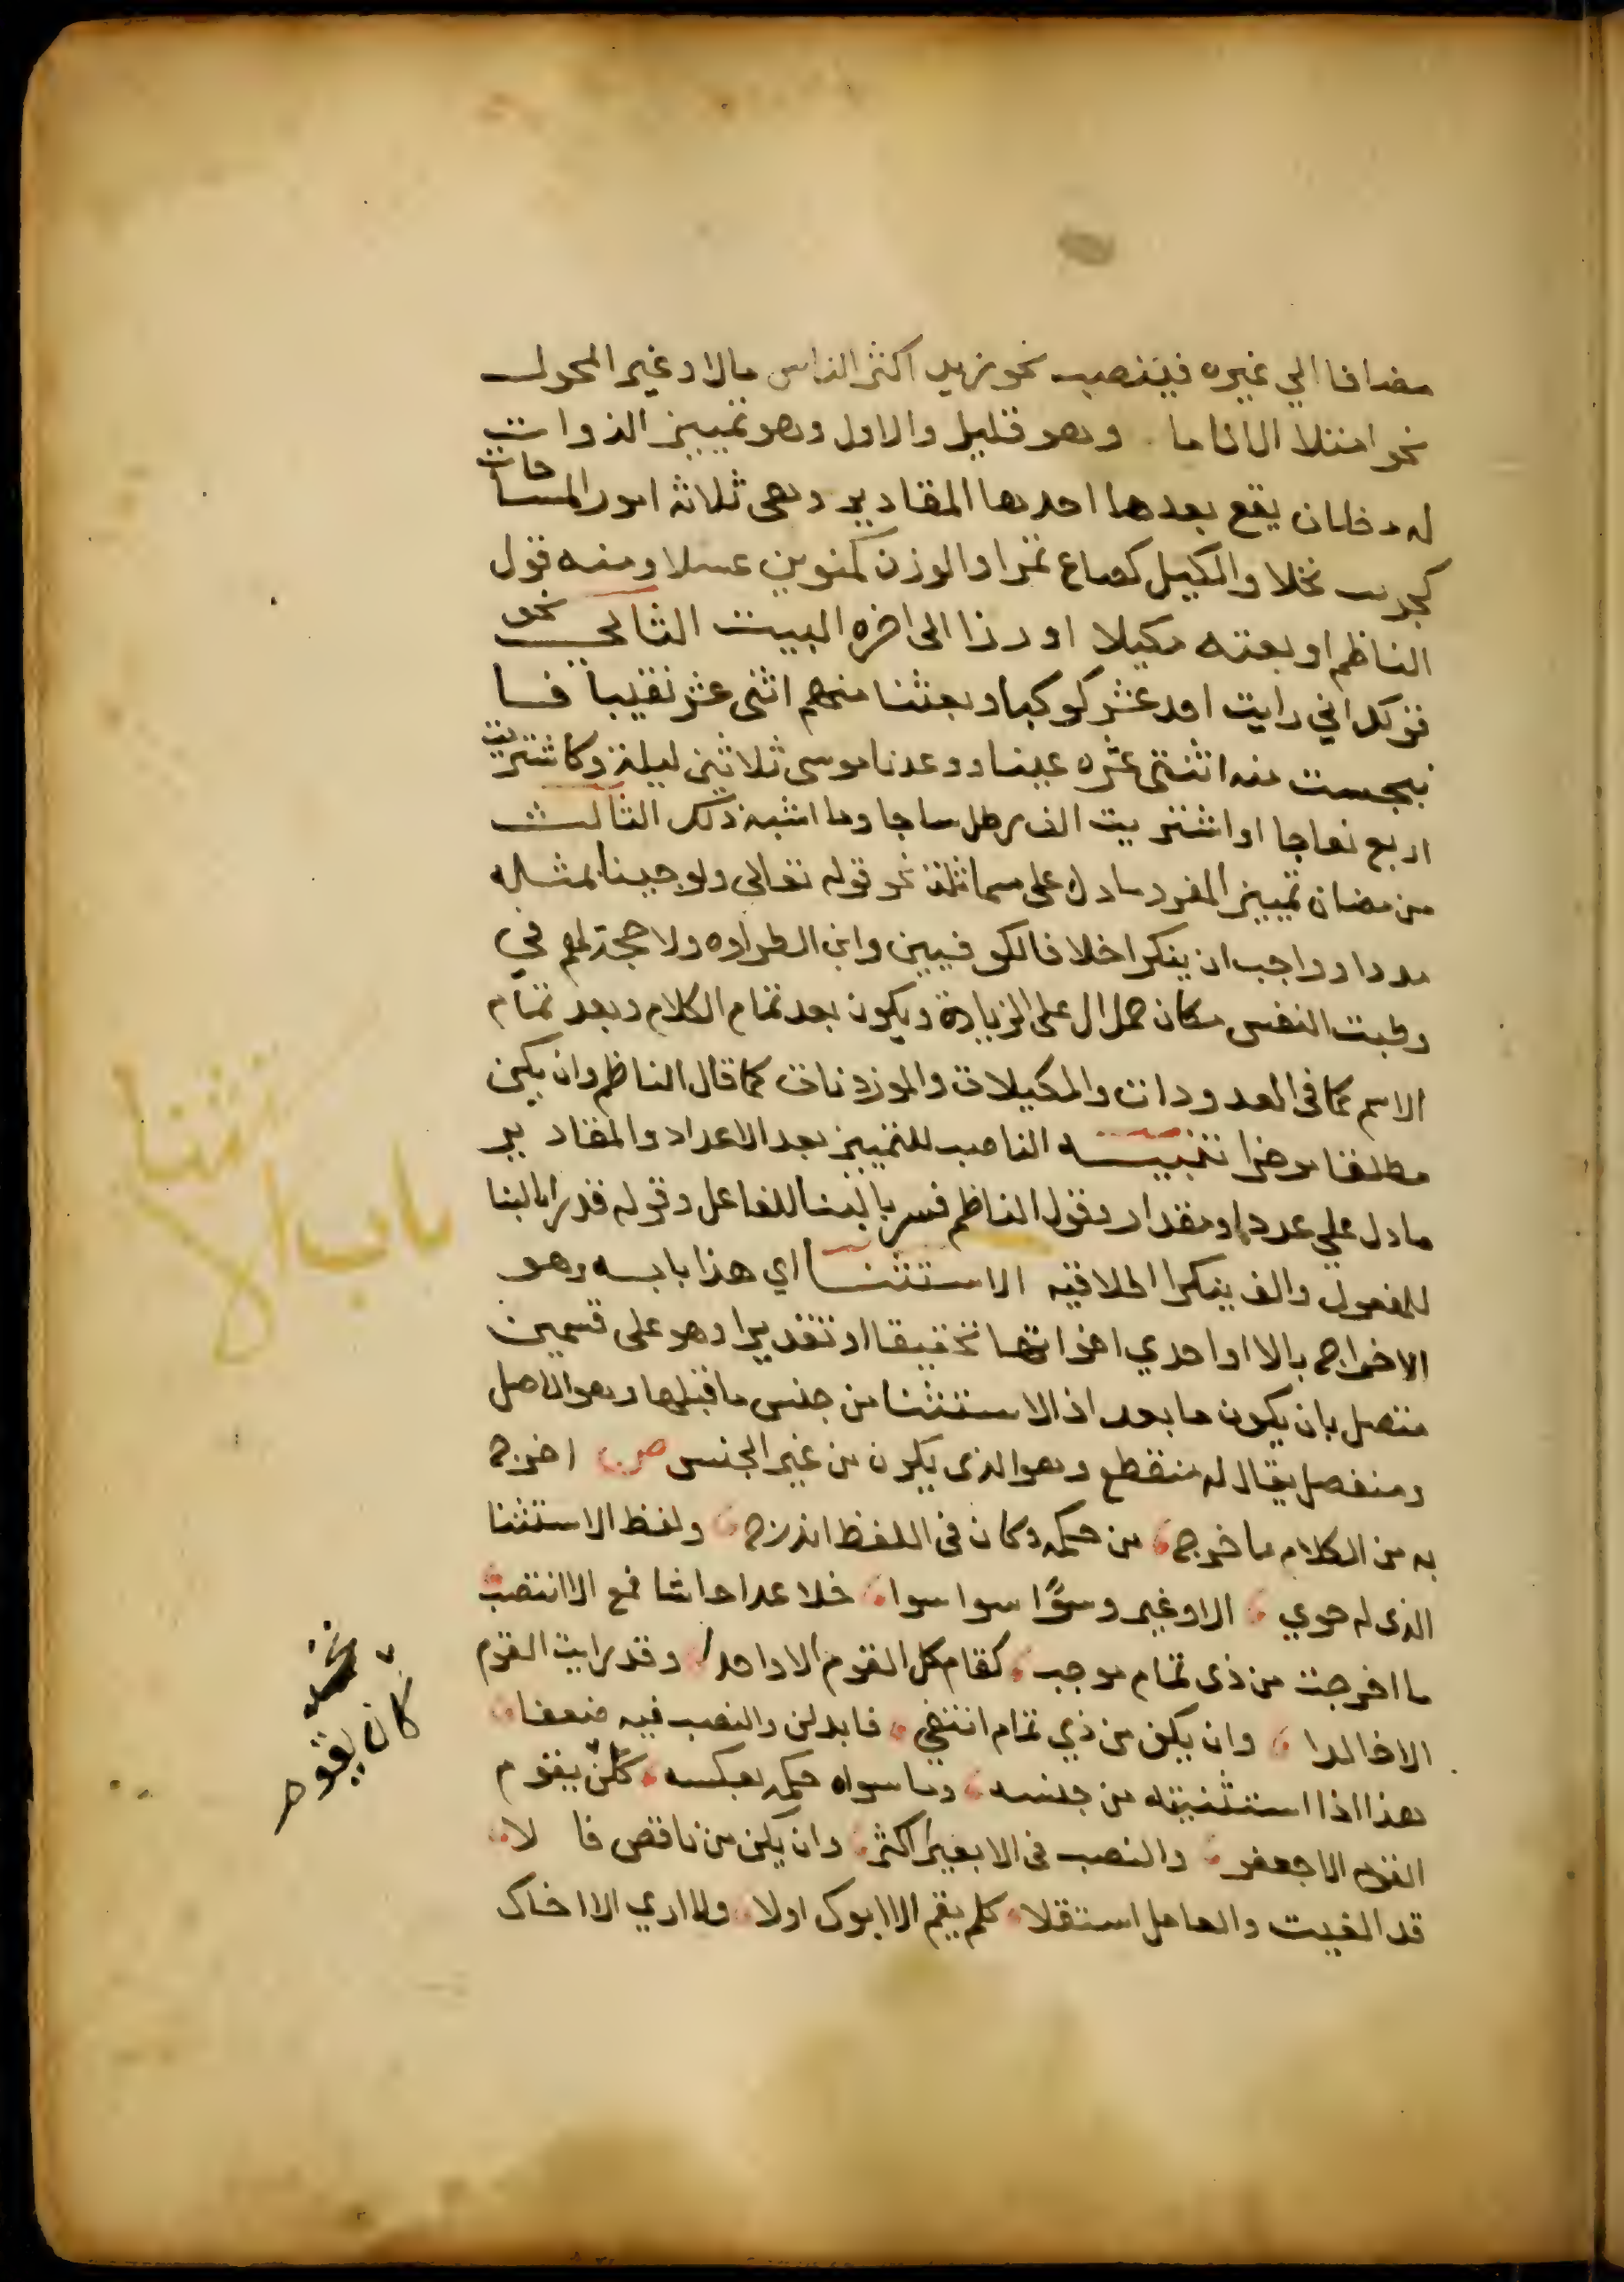 مضافا الي غيره فينصب نحو زيد اكثر الناس مالا وغير المحول
نحو امتلا الانا ما وهو قليل والاول وهو تمييز الذوات
له مظان يقع بعدها احدها المقادير وهي ثلاثة امور المساحات
كجريب نخلا والكيل كصاع تمرا والوزن كمنوين عسلا ومنه قول
الناظم او بعته مكيلا او رزا الى اخره البيت الثاني نحو
قولك اني رايت احد عشر كوكبا وبعثنا منهم اثنى عشر نقيبا فا
نبجست منه اثنتى عشره عينا ووعدنا موسى ثلاثين ليلة وكاشتريت
اربع نعاجا او اشتريت الف رطل ساجا وما اشبه ذلك الثالث
من مضان تمييز المفرد ما دل على مماثلة نحو قوله تعالى ولو جينا بمثله
مددا وواجب ان ينكرا خلافا لكوفيين وابن الطراوه ولا حجة لهم في
وطبت النفس مكان حمل ال على الزيادة ويكون بعد تمام الكلام وبعد تمام
الاسم كما في المعدودات والمكيلات والموزونات كما قال الناظم وان يكن
مطلقا موخرا تنبيه الناصب للتمييز بعد الاعداد والمقادير
ما دل علي عدد او مقدار وقول الناظم فسر بالبنا للفاعل وقوله قدرا بالبنا
للمفعول والف ينكرا اطلاقيه الاستثنا اي هذا بابه وهو
الاخراج بالا او احدي اخواتها تحقيقا او تقديرا وهو على قسمين
متصل بان يكون ما بعد اذا الاستثنا من جنس ما قبلها وهو الاصل
ومنفصل يقال له منقطع وهو الذى يكون من غير الجنس ص اخرج
به من الكلام ما خرج من حكمه وكان في اللفظ اندرج ولفظ الاستثنا
الذى له حوي الا وغير وسوا سوا سوا خلا عدا حاشا فمع الا انتصب
ما اخرجت من ذى تمام موجب كقام كل القوم الا واحدا وقد رايت القوم
الا خالدا وان يكن من ذي تمام انتفي فابدلن والنصب فيه ضعفا
هذا اذا استثنيته من جنسه وما سواه حكمه بعكسه كلن يقوم
القوم الا جعفر والنصب في الا بعير اكثر وان يكن من ناقص فا لا
قد الغيت والعامل استقلا كلم يقم الا ابوك اولا ولا اري الا اخاك
باب الاستثنا
كان يقوم